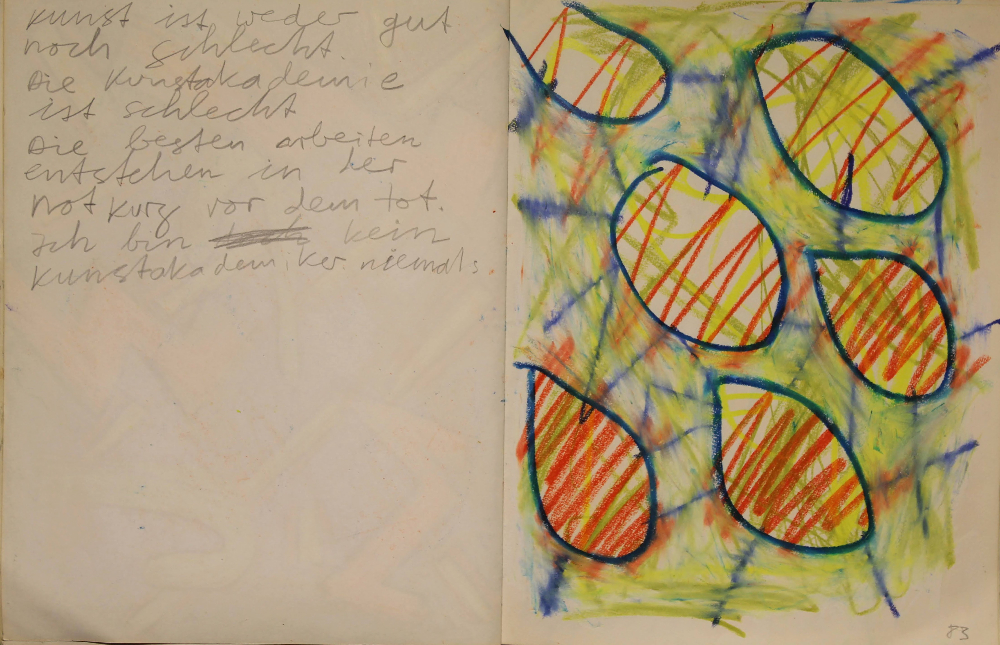 kunst ist weder gut
noch schlecht.
Die kunstakademie
ist schlecht
Die besten arbeiten
entstehen in der
not kurz vor dem tot.
Ich bin kein
kunstakademiker niemals
83